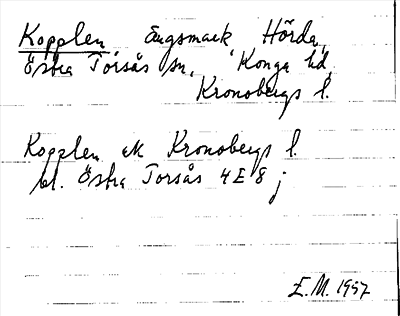 Kopplen, Ängsmark Hörda,
Östra Torsås sn, Konga hd,
Kronobergs l.
Kopplen ek Kronobergs l.
bl. Östra Torsås 4E 8 j
E.M. 1957